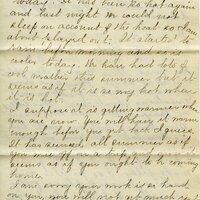 today. It has been so hot again
and last night we could not
sleep on account of the heat so
about It started to
rain before morning and so is
cooler today. We have had lots of
cool weather this summer but it
seems as if it is so very hot where
it is hot.
I suppose it is getting warmer where
you are now. You will have it warm
enough before you get back I guess.
It has seemed all summer as if
you were off on a trip and it
seems as if you ought to be coming
home.
I am sorry your work is so hard
on you, you will not get much